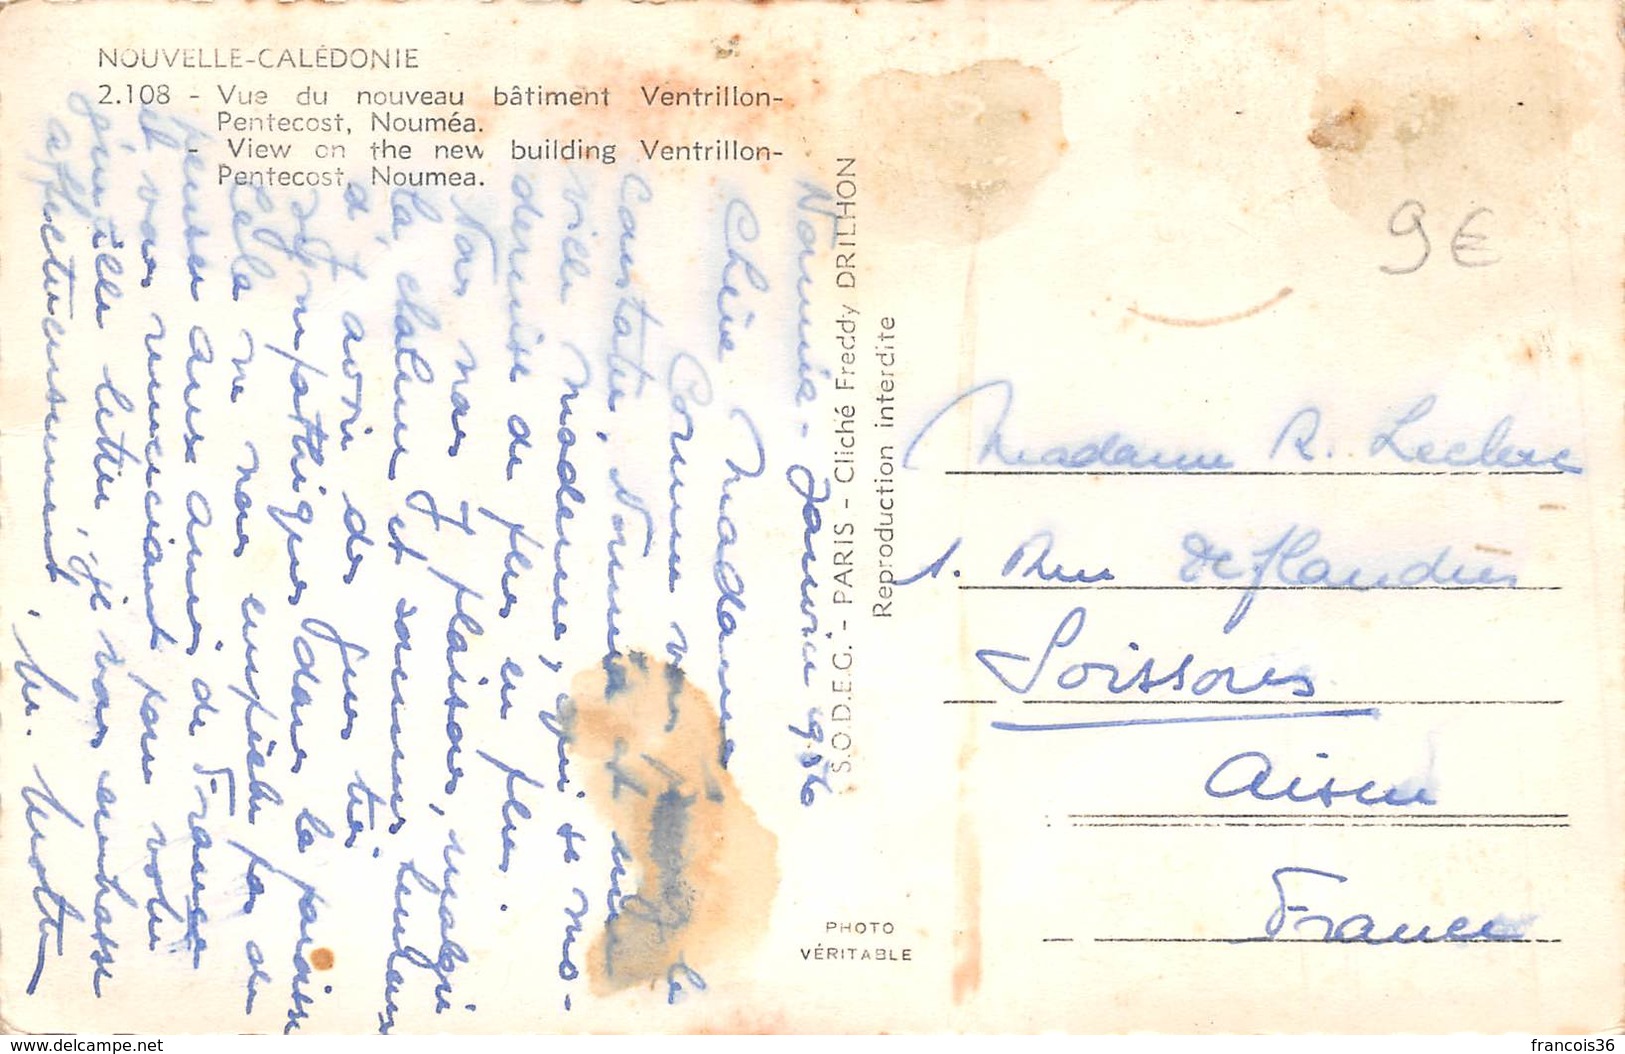 NOUVELLE-CALÉDONIE
2.108 - Vue du nouveau bâtiment Ventrillon-
Pentecost, Nouméa.
- View on the new building Ventrillon-
Pentecost, Noumea.
Nouméa - Janvier 1956
Chère Madame
Comme vous le
constatez, Nouméa est une
ville moderne, qui se mo-
dernise de plus en plus.
Nous nous y plaisons, malgré
la chaleur et sommes heureux
d'avoir des gens très
sympathiques dans la paroisse
Cela ne nous empêche pas de
penser aux amis de France
et vous remerciant pour votre
gentille lettre, je vous embrasse
affectueusement.
S.O.D.E.G. - PARIS - Cliché Freddy DRILHON
Reproduction interdite
PHOTO
VÉRITABLE
9€
Madame R. Leclerc
1. Rue de Flandres
Soissons
Aisne
France
delcampe.net
francois36